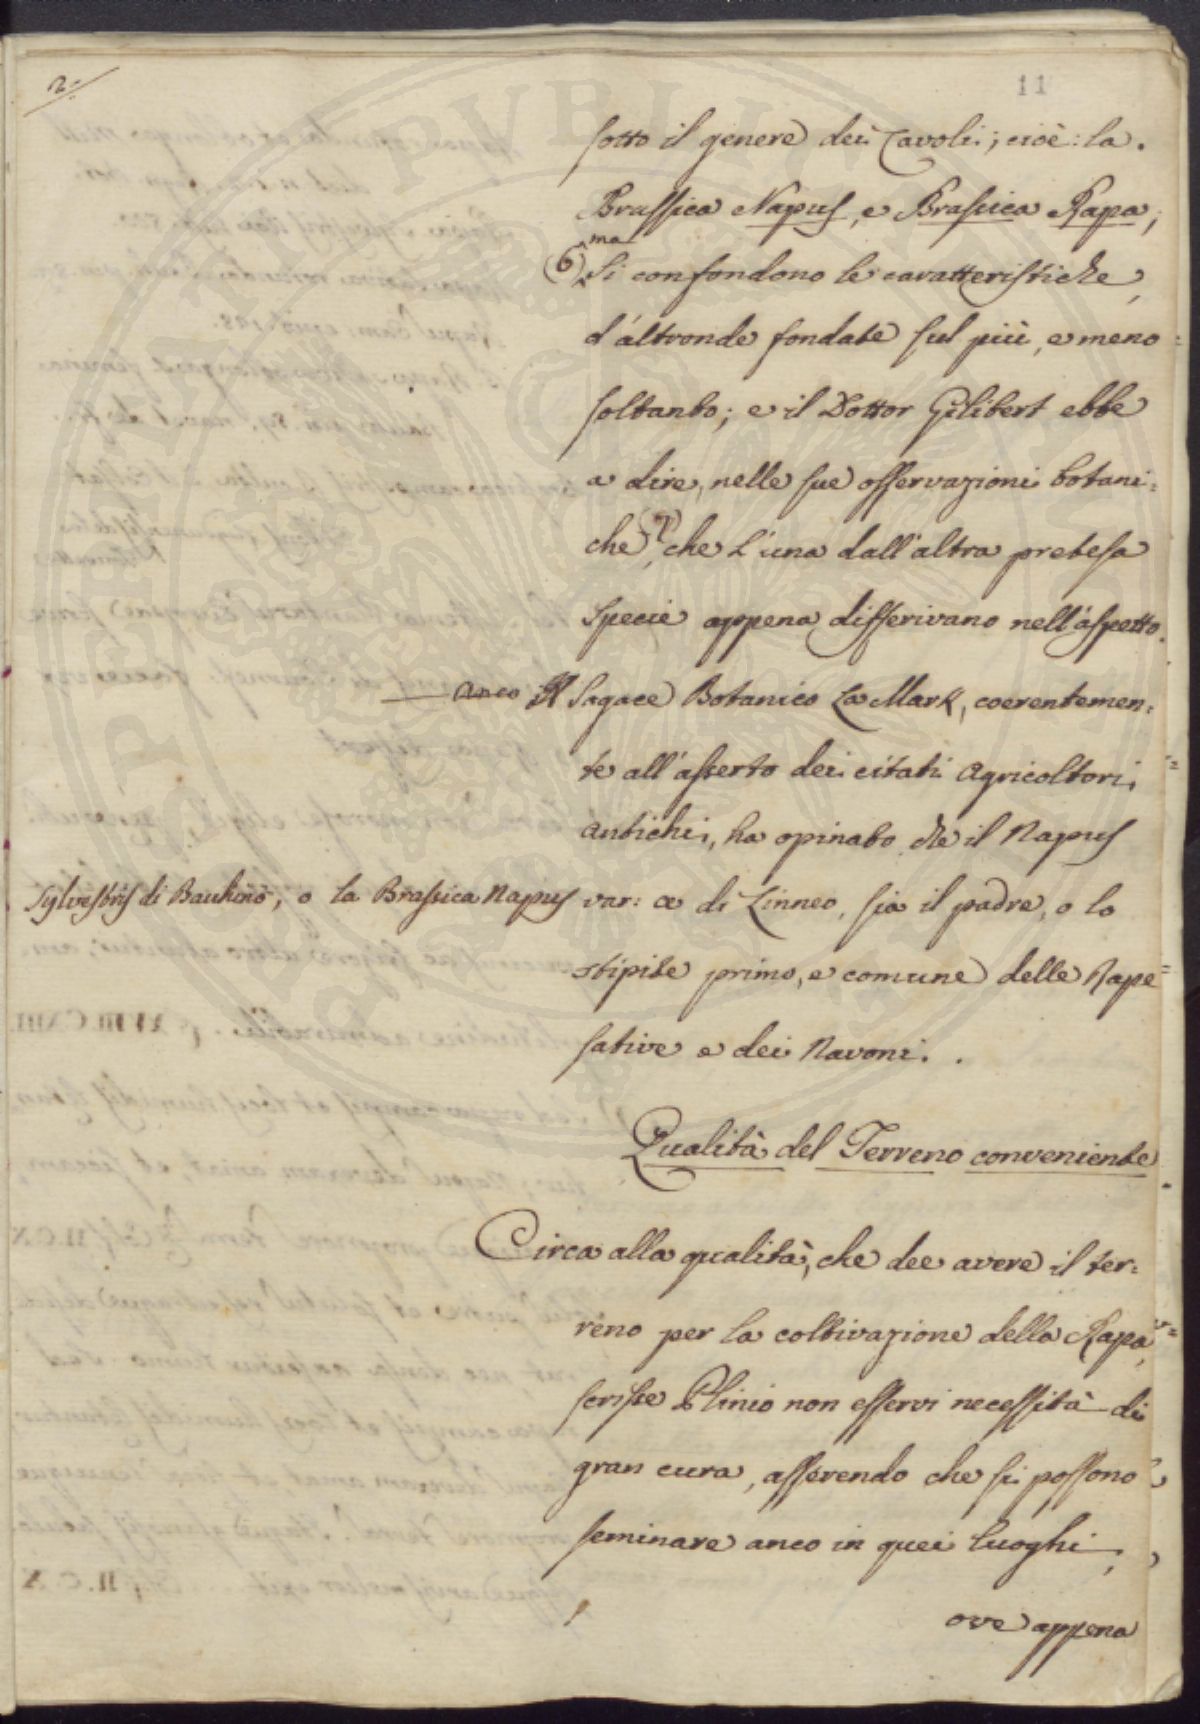 2.
11
sotto il genere dei Cavoli; cioè: la
Brassica Napus, e Brassica Rapa,
ma
(6) si confondono le caratteristiche,
d'altronde fondate sul più, e meno
soltanto; e il Dottor Gilibert ebbe
a dire, nelle sue osservazioni botani=
che, che l'una dall'altra pretesa
specie appena differivano nell'aspetto.
anco Il Sagace Botanico La Mark, coerentemen=
te all'asserto dei citati Agricoltori
antichi, ha opinato che il Napus
sylvestris di Bauhino, o la Brassica Napus var: α di Linneo, sia il padre, o lo
stipite primo, e comune delle Rape
sative e dei Navoni.
Qualità del Terreno conveniente
Circa alla qualità, che dee avere il ter=
reno per la coltivazione della Rapa,
scrisse Plinio non esservi necessità di
gran cura, asserendo che si possono
seminare anco in quei luoghi,
ove appena